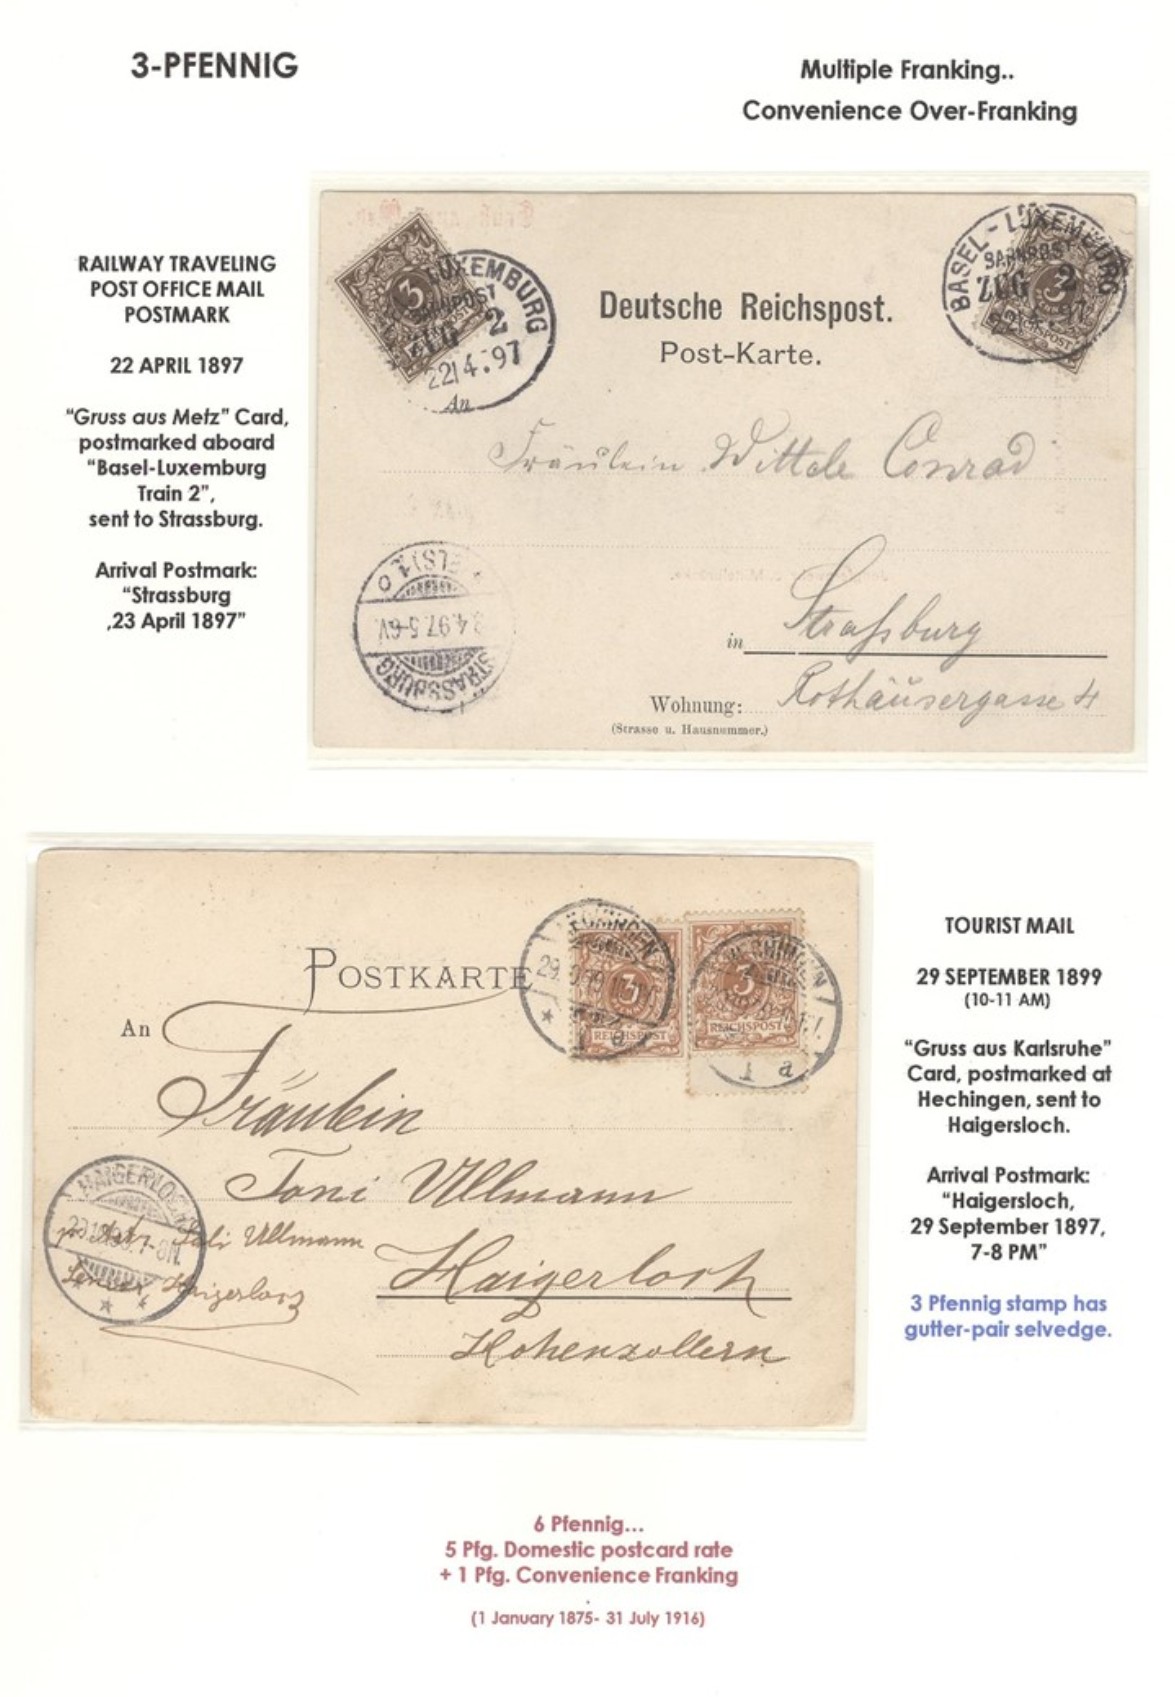 3-PFENNIG
Multiple Franking..
Convenience Over-Franking
RAILWAY TRAVELING
POST OFFICE MAIL
POSTMARK
22 APRIL 1897
“Gruss aus Metz” Card,
postmarked aboard
“Basel-Luxemburg
Train 2”,
sent to Strassburg.
Arrival Postmark:
“Strassburg
,23 April 1897”
3
LUXEMBURG
BAHNPOST
ZUG 2
22/4.97
An
BASEL-LUXEMBURG
BAHNPOST
ZUG 2
22/4.97
3
Deutsche Reichspost.
Post-Karte.
Fräulein Conrad
in Straßburg
Wohnung: Rothäusergasse 4
(Strasse u. Hausnummer.)
4.97.5-6V.
STRASSBURG
POSTKARTE
An
HECHINGEN
29.
3
REICHSPOST
a
HECHINGEN
3
REICHSPOST
1 a
Fräulein
Toni Ullmann
Ullmann
Haigerloch
Hohenzollern
HAIGERLOCH
7-8N.
TOURIST MAIL
29 SEPTEMBER 1899
(10-11 AM)
“Gruss aus Karlsruhe”
Card, postmarked at
Hechingen, sent to
Haigersloch.
Arrival Postmark:
“Haigersloch,
29 September 1897,
7-8 PM”
3 Pfennig stamp has
gutter-pair selvedge.
6 Pfennig...
5 Pfg. Domestic postcard rate
+ 1 Pfg. Convenience Franking
(1 January 1875- 31 July 1916)